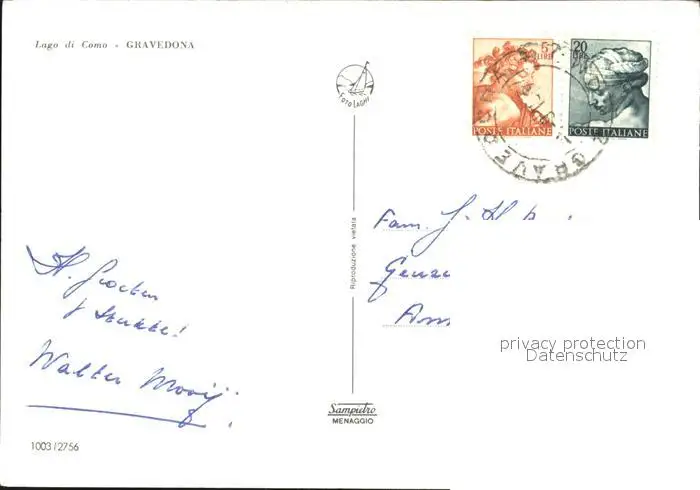 Lago di Como - GRAVEDONA
FOTO LAGHI
5 LIRE
POSTE ITALIANE
20 LIRE
POSTE ITALIANE
Riproduzione vietata
Fam. J.
Am
H. Groeten
Walter Mooij
privacy protection
Datenschutz
Sampietro
MENAGGIO
1003/2756